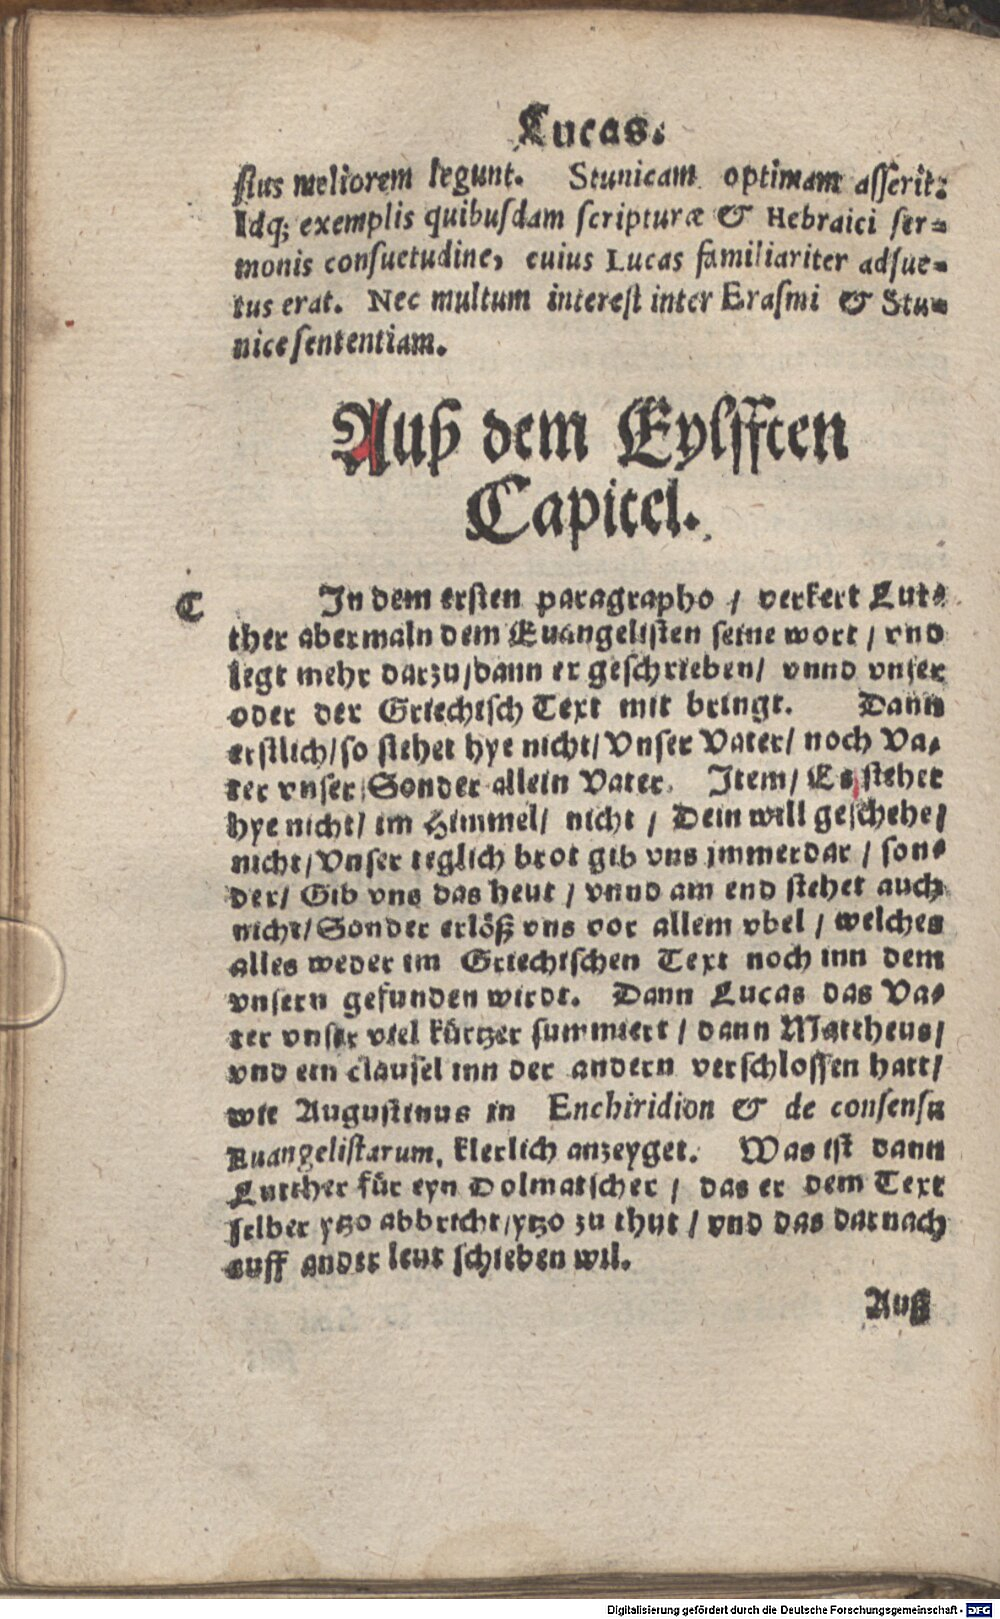 Lucas.
ſius meliorem legunt. Stunicam optimam aſſerit:
Idq; exemplis quibuſdam ſcripturæ & Hebraici ſer⸗
monis conſuetudine, cuius Lucas familiariter adſue⸗
tus erat. Nec multum intereſt inter Eraſmi & Stu⸗
nice ſententiam.
Auß dem Eylfften
Capitel.
C
In dem erſten paragrapho / verkert Lut⸗
ther abermaln dem Euangeliſten ſeine wort / vnd
legt mehr darzu / dann er geſchrieben / vnnd vnſer
oder der Griechiſch Text mit bringt. Dann
erſtlich / ſo ſtehet hye nicht / Vnſer Vater / noch Va⸗
ter vnſer / Sonder allein Vater. Item / Es ſtehet
hye nicht / im Himmel / nicht / Dein will geſchehe /
nicht / Vnſer teglich brot gib vns jmmerdar / ſon⸗
der / Gib vns das heut / vnnd am end ſtehet auch
nicht / Sonder erlöß vns vor allem vbel / welches
alles weder im Griechiſchen Text noch inn dem
vnſern gefunden wirdt. Dann Lucas das Va⸗
ter vnſer viel kürtzer ſummiert / dann Mattheus /
vnd ein clauſel inn der andern verſchloſſen hatt /
wie Auguſtinus in Enchiridion & de conſenſu
Euangeliſtarum, klerlich anzeyget. Was iſt dann
Lutther für eyn Dolmatſcher / das er dem Text
ſelber ytzo abbricht / ytzo zu thut / vnd das darnach
auff ander leut ſchieben wil.
Auß
Digitalisierung gefördert durch die Deutsche Forschungsgemeinschaft - DFG